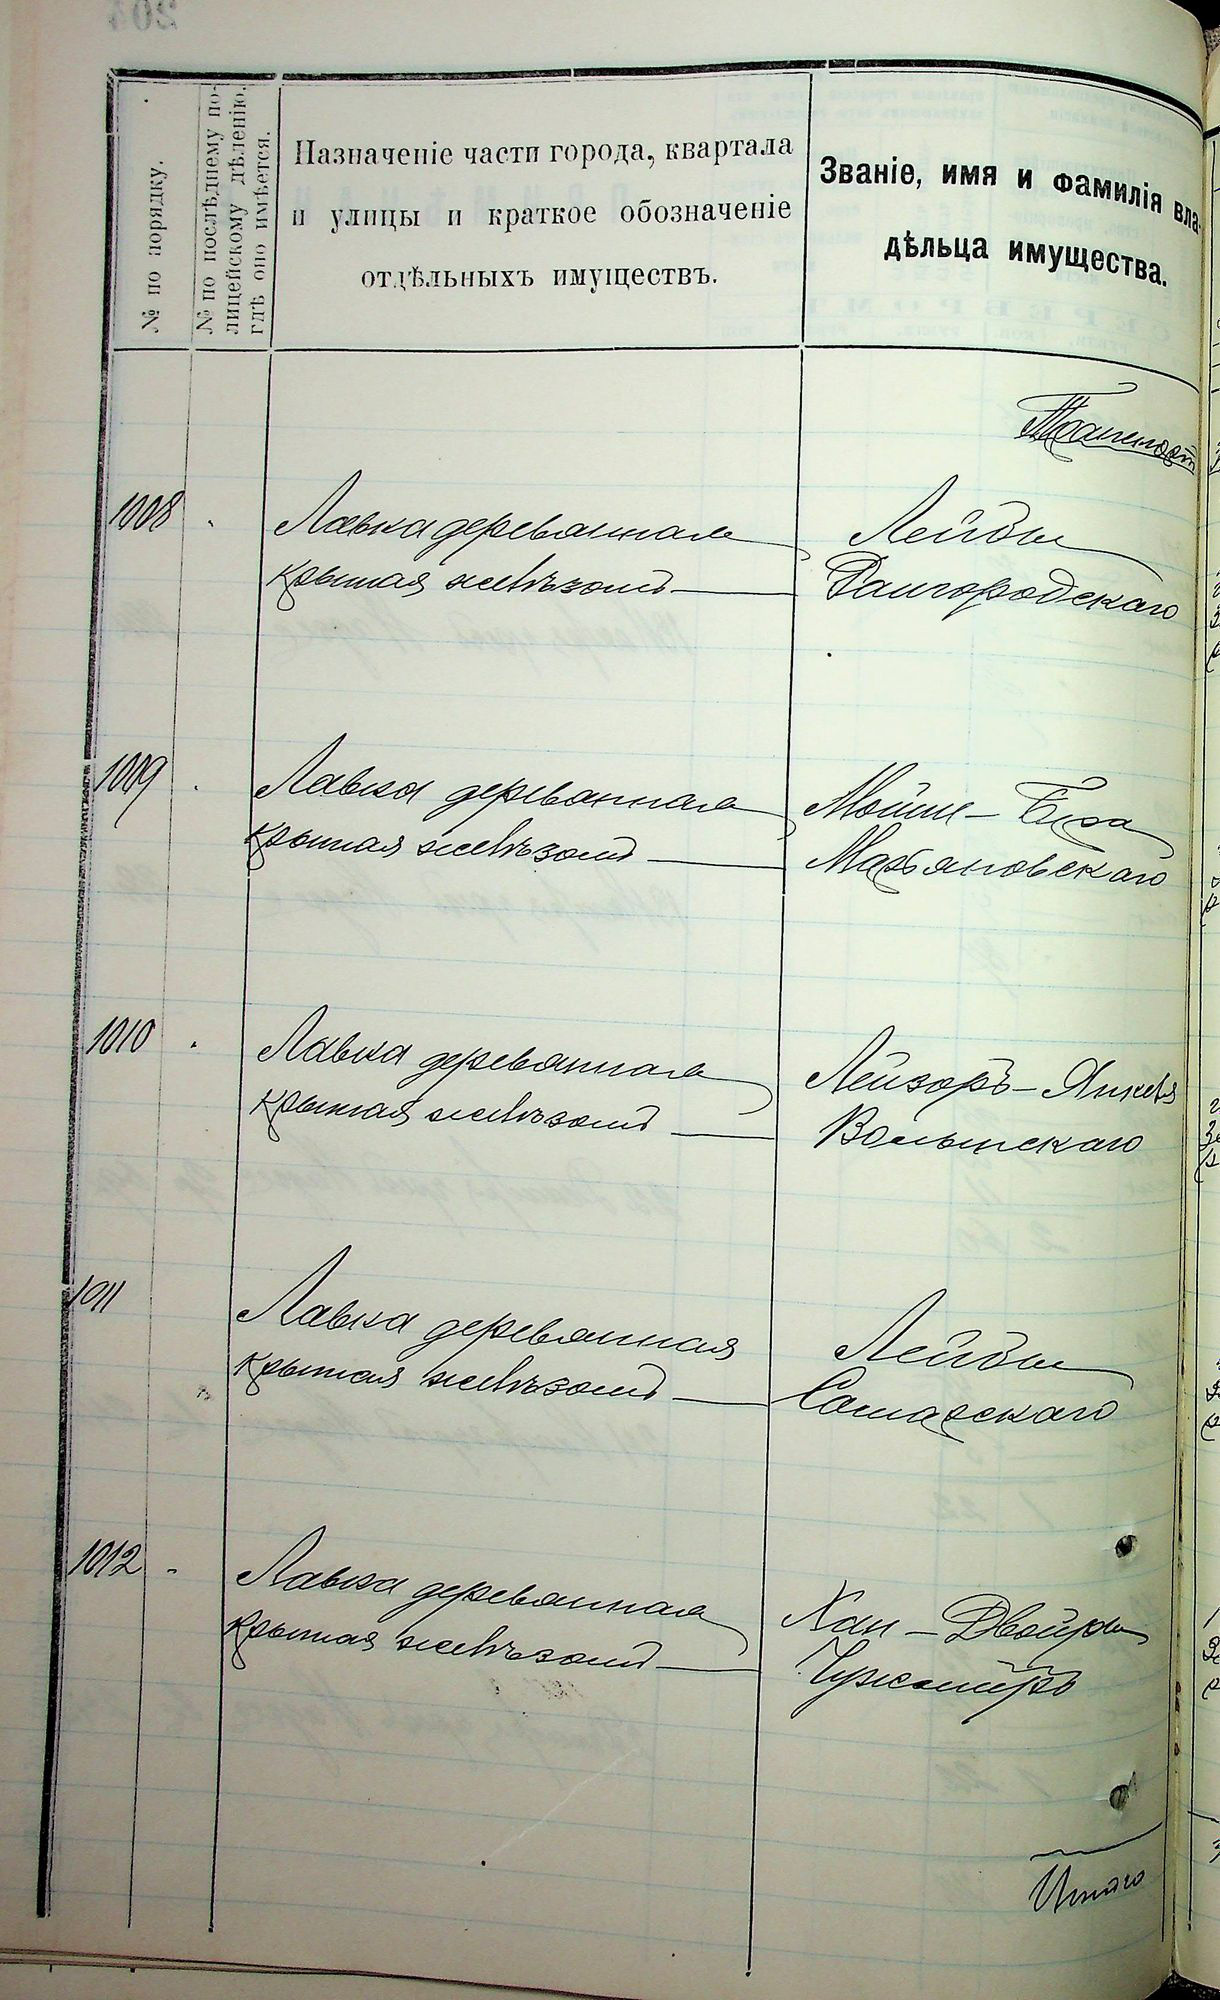 № по порядку.
№ по послѣднему по-
лицейскому дѣленію,
гдѣ оно имѣется.
Назначеніе части города, квартала
и улицы и краткое обозначеніе
отдѣльныхъ имуществъ.
Званіе, имя и фамилія вла-
дѣльца имущества.
1008
Лавка деревянная
крытая желѣзомъ
Лейбы
Рангородскаго
1009
Лавка деревянная
крытая желѣзомъ
Мошки-Бера
Марьяновскаго
1010
Лавка деревянная
крытая желѣзомъ
Лейзоръ-Янкеля
Волынскаго
1011
Лавка деревянная
крытая желѣзомъ
Лейбы
Самарскаго
1012
Лавка деревянная
крытая желѣзомъ
Хаи-Двойры
Итого